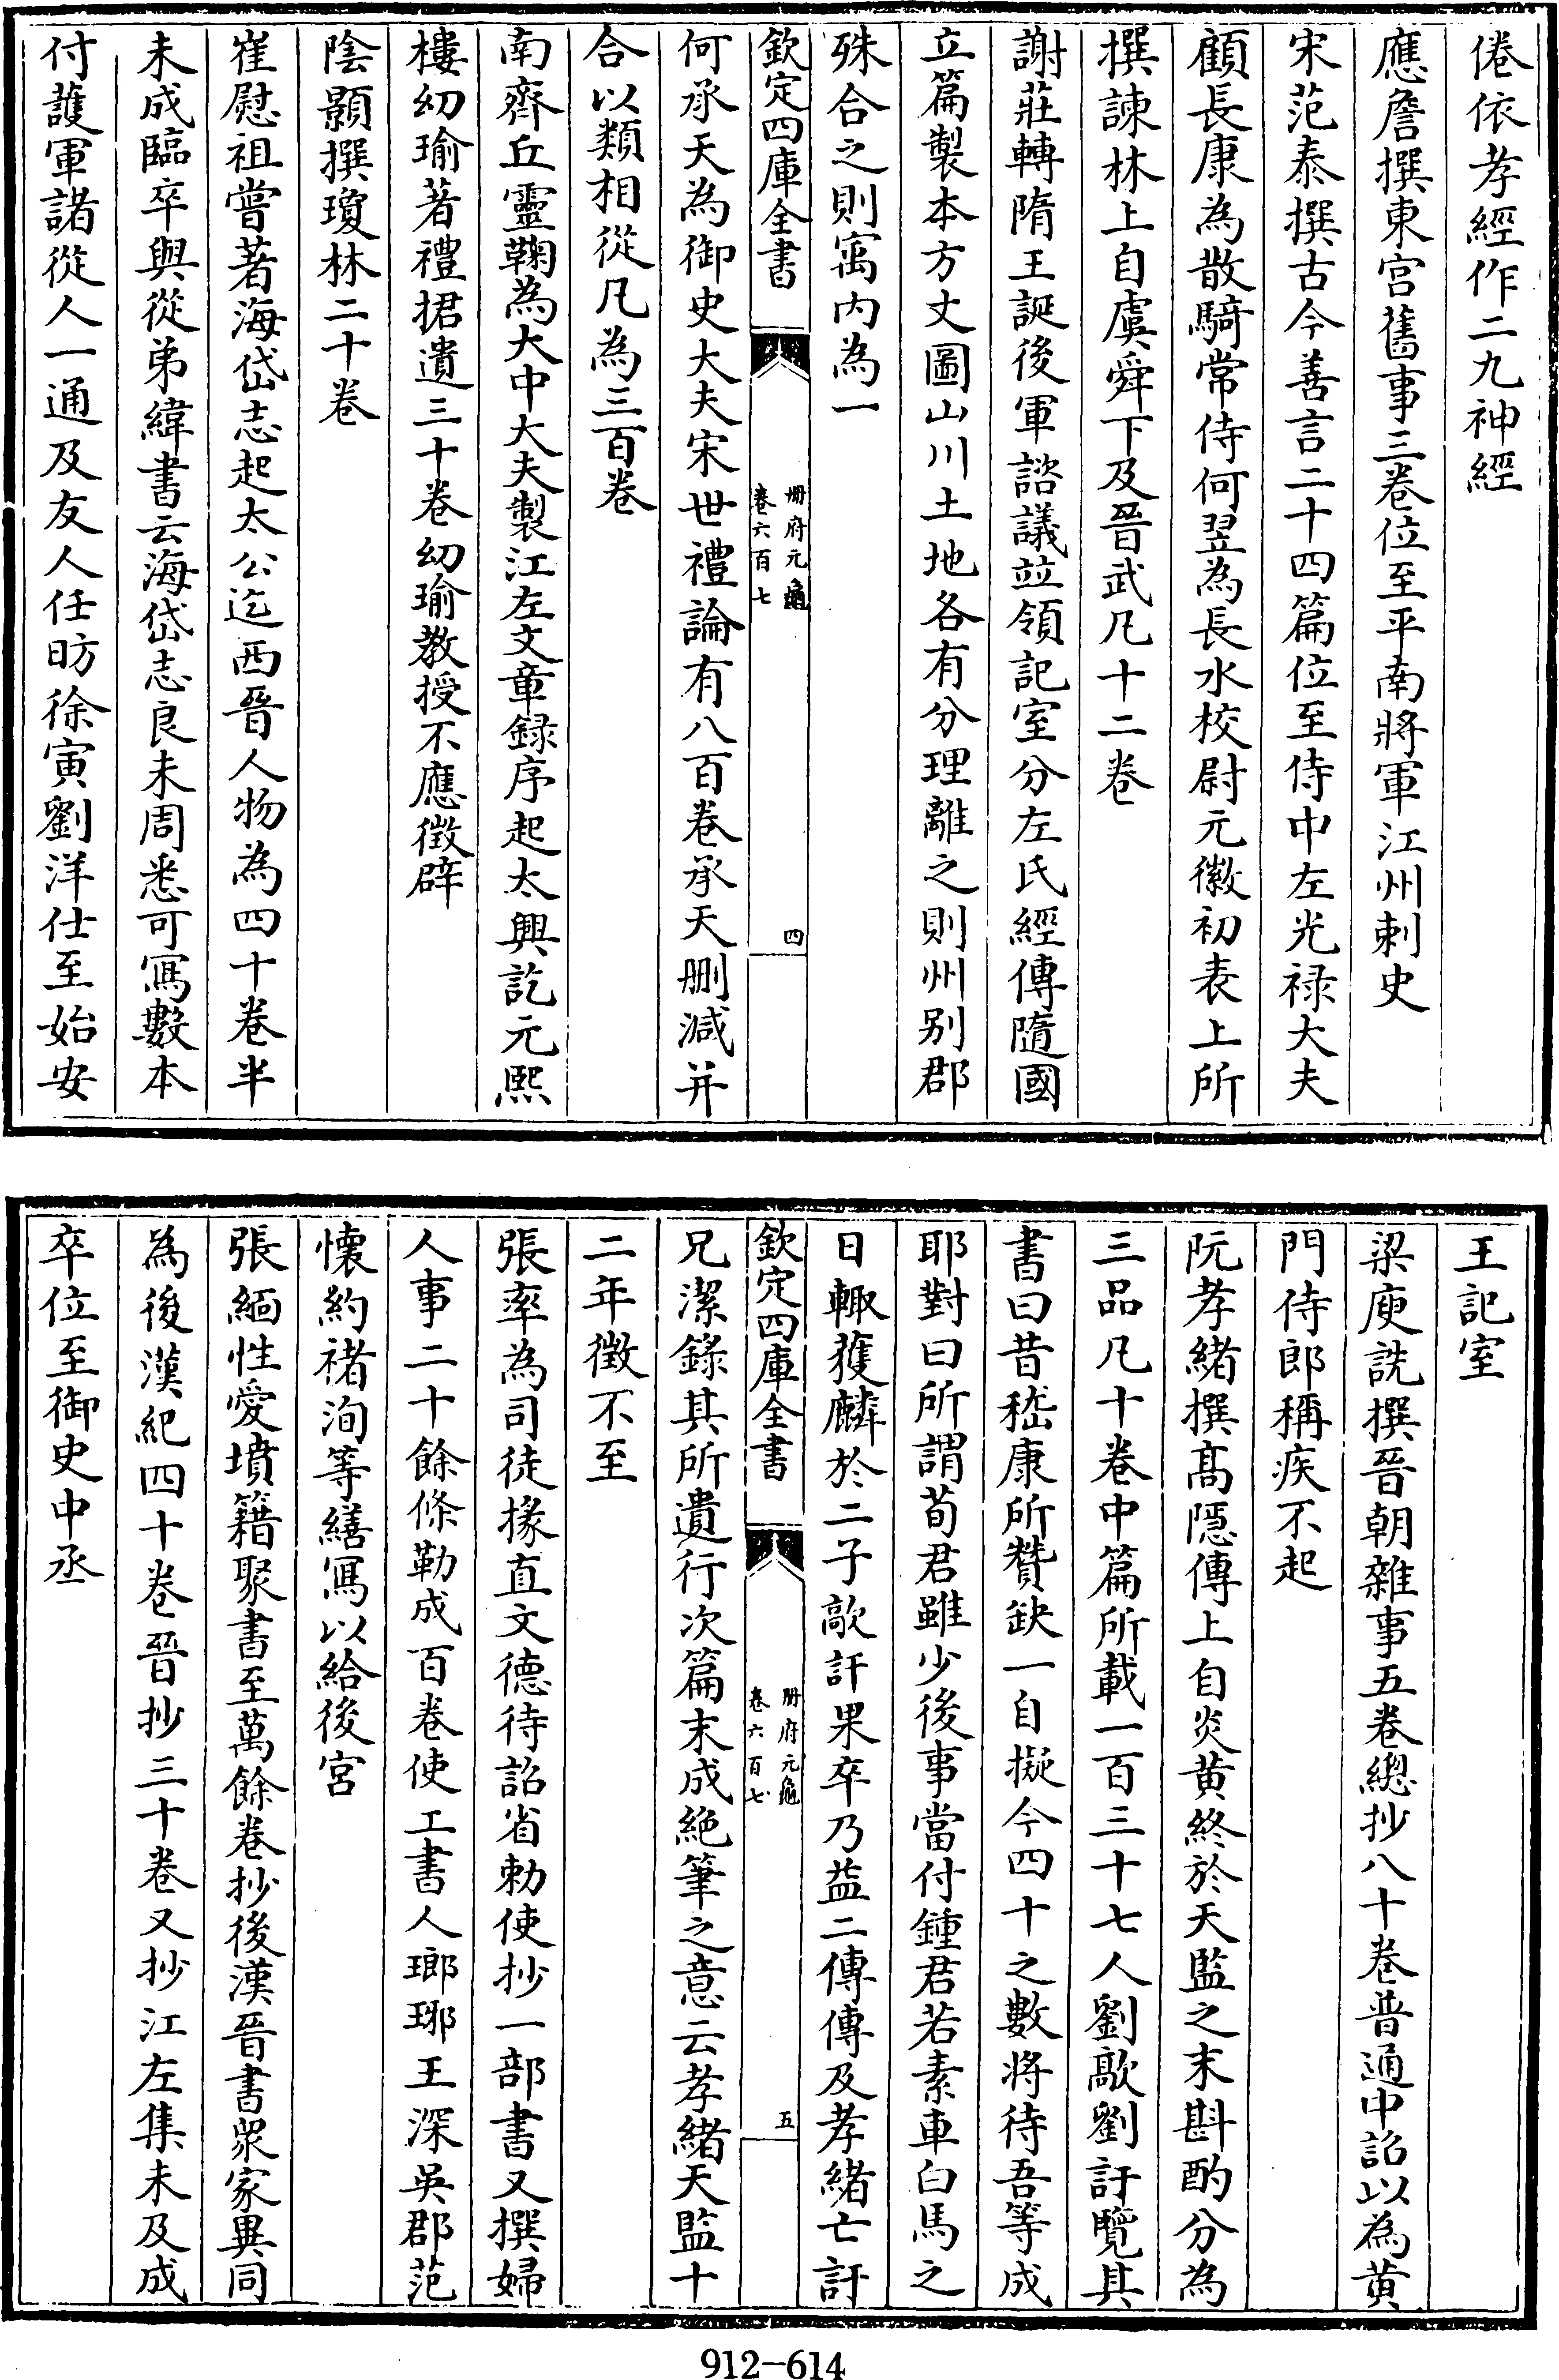 倦依孝經作二九神經
應詹撰東宫舊事三卷位至平南將軍江州刺史
宋范泰撰古今善言二十四篇位至侍中左光禄大夫
顧長康為散騎常侍何翌為長水校尉元徽初表上所
撰諫林上自虞舜下及晉武凡十二卷
謝莊轉隋王誕後軍諮議竝領記室分左氏經傳隨國
立篇製本方丈圖山川土地各有分理離之則州别郡
殊合之則寓内為一
欽定四庫全書
册府元龜
卷六百七
四
何承天為御史大夫宋世禮論有八百卷承天删減并
合以類相從凡為三百卷
南齊丘靈鞠為大中大夫製江左文章録序起太興訖元熙
樓幼瑜著禮捃遺三十卷幼瑜教授不應徴辟
陰顥撰瓊林二十卷
崔慰祖嘗著海岱志起太公迄西晉人物為四十卷半
未成臨卒與從弟緯書云海岱志良未周悉可寫數本
付護軍諸從人一通及友人任昉徐寅劉洋仕至始安
王記室
梁庾詵撰晉朝雜事五卷緫抄八十卷普通中詔以為黄
門侍郎稱疾不起
阮孝緒撰髙隱傳上自炎黄終於天監之末斟酌分為
三品凡十卷中篇所載一百三十七人劉歊劉訏覽其
書曰昔嵇康所贊缺一自擬今四十之數將待吾等成
耶對曰所謂荀君雖少後事當付鍾君若素車白馬之
日輙獲麟於二子歊訏果卒乃益二傳傳及孝緒亡訏
欽定四庫全書
册府元龜
卷六百七
五
兄潔錄其所遺行次篇末成絶筆之意云孝緒天監十
二年徴不至
張率為司徒掾直文德待詔省勅使抄一部書又撰婦
人事二十餘條勒成百卷使工書人瑯琊王深吳郡范
懷約褚洵等繕寫以給後宮
張緬性愛墳籍聚書至萬餘卷抄後漢晉書衆家異同
為後漢紀四十卷晉抄三十卷又抄江左集未及成
卒位至御史中丞
912-614